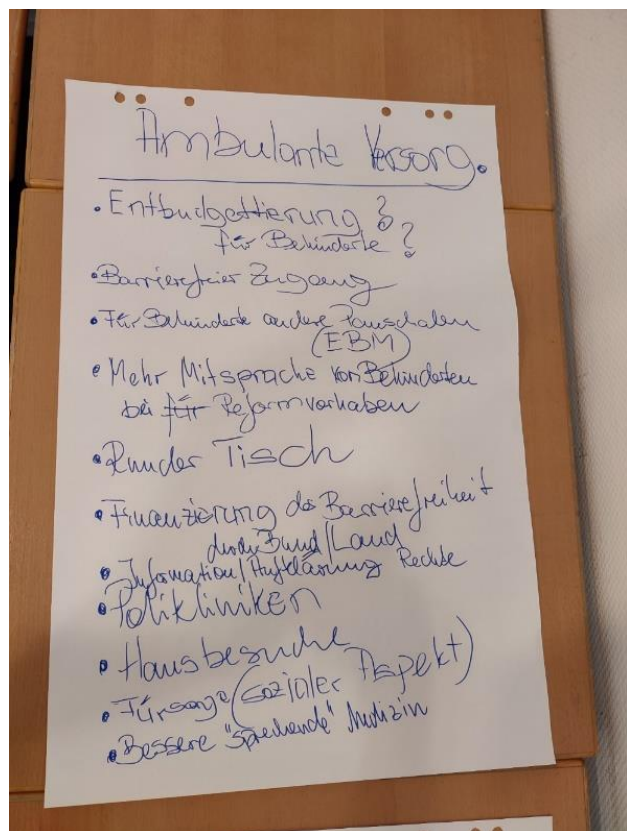 Ambulante Versorg.
• Entbudgettierung ?
für Behinderte ?
• Barrierefreier Zugang
• Für Behinderte andere Pauschalen
(EBM)
• Mehr Mitsprache von Behinderten
bei für Reformvorhaben
• Runder Tisch
• Finanzierung der Barrierefreiheit
durch Bund/Land
• Information/Aufklärung Rechte
• Polikliniken
• Hausbesuche
• Fürsorge (sozialer Aspekt)
• Bessere "sprechende" Medizin